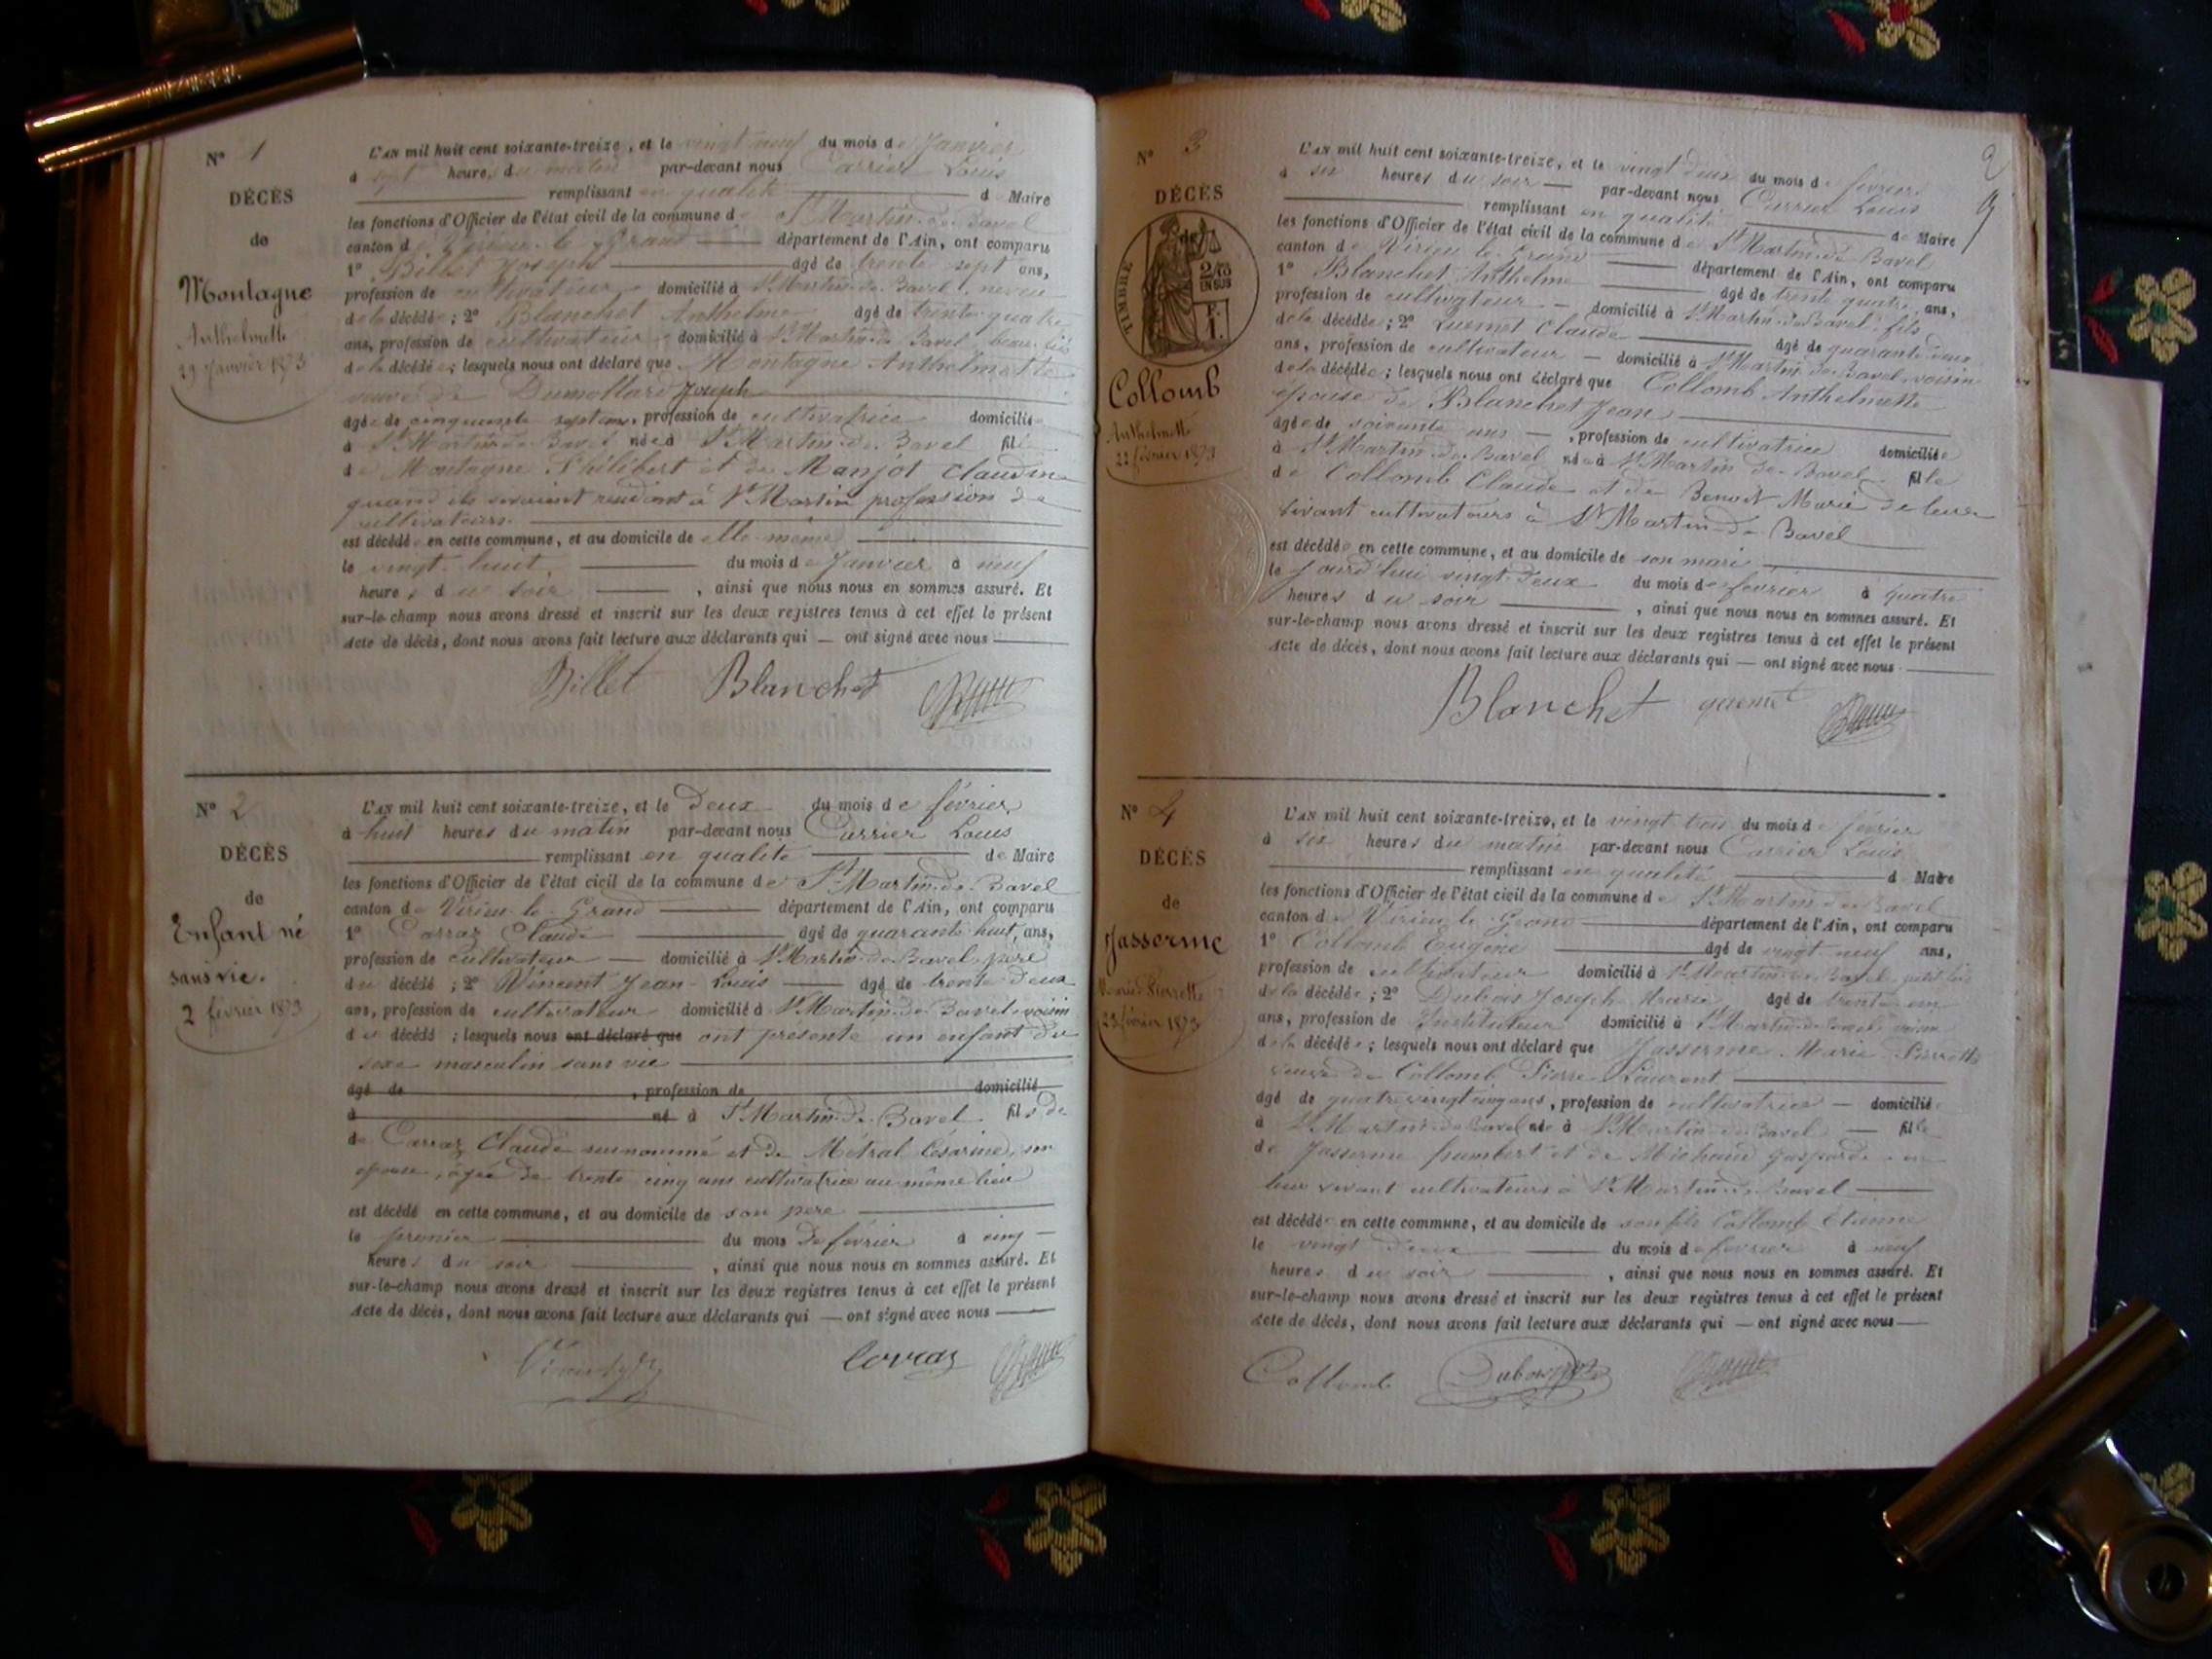 N° 1
DÉCÈS
de
Montagne
Anthelmette
29 Janvier 1873
L'AN mil huit cent soixante-treize, et le vingt neuf du mois de Janvier
à sept heures du matin par-devant nous Carrier Louis
remplissant en qualité de Maire
les fonctions d'Officier de l'état civil de la commune de St Martin-de-Bavel
canton de Virieu-le-Grand département de l'Ain, ont comparu
1° Billet Joseph âgé de trente sept ans,
profession de cultivateur domicilié à St Martin-de-Bavel, neveu
de la décédée ; 2° Blanchet Anthelme âgé de trente quatre
ans, profession de cultivateur domicilié à St Martin-de-Bavel, beau-fils
de la décédée ; lesquels nous ont déclaré que Montagne Anthelmette
veuve de Dumollard Joseph
âgée de cinquante sept ans, profession de cultivatrice domiciliée
à St Martin-de-Bavel née à St Martin-de-Bavel fille
de Montagne Philibert et de Manjot Claudine
quand ils vivaient résidant à St Martin profession de
cultivateurs.
est décédée en cette commune, et au domicile de elle-même
le vingt-huit du mois de Janvier à neuf
heures du soir, ainsi que nous nous en sommes assuré. Et
sur-le-champ nous avons dressé et inscrit sur les deux registres tenus à cet effet le présent
Acte de décès, dont nous avons fait lecture aux déclarants qui — ont signé avec nous
Billet Blanchet
N° 2
DÉCÈS
de
Enfant né
sans vie.
2 février 1873
L'AN mil huit cent soixante-treize, et le Deux du mois de février
à huit heures du matin par-devant nous Carrier Louis
remplissant en qualité de Maire
les fonctions d'Officier de l'état civil de la commune de St Martin-de-Bavel
canton de Virieu-le-Grand département de l'Ain, ont comparu
1° Carraz Claude âgé de quarante-huit ans,
profession de cultivateur — domicilié à St Martin-de-Bavel, père
du décédé ; 2° Vincent Jean-Louis âgé de trente deux
ans, profession de cultivateur domicilié à St Martin-de-Bavel, voisin
du décédé ; lesquels nous ont déclaré que ont présenté un enfant du
sexe masculin sans vie
âgé de , profession de domicilié
à né à St Martin-de-Bavel fils de
de Carraz Claude surnommé et de Métral Césarine, son
épouse, âgée de trente cinq ans cultivatrice au même lieu
est décédé en cette commune, et au domicile de son père
le premier du mois de février à cinq
heures du soir, ainsi que nous nous en sommes assuré. Et
sur-le-champ nous avons dressé et inscrit sur les deux registres tenus à cet effet le présent
Acte de décès, dont nous avons fait lecture aux déclarants qui — ont signé avec nous
Carraz
2
N° 3
DÉCÈS
TIMBRE
2/10
EN SUS
Collomb
Anthelmette
22 février 1873
L'AN mil huit cent soixante-treize, et le vingt deux du mois de février
à six heures du soir — par-devant nous Carrier Louis
remplissant en qualité de Maire
les fonctions d'Officier de l'état civil de la commune de St Martin-de-Bavel
canton de Virieu-le-Grand département de l'Ain, ont comparu
1° Blanchet Anthelme âgé de trente quatre ans,
profession de cultivateur — domicilié à St Martin-de-Bavel, fils
de la décédée ; 2° Claude âgé de quarante deux
ans, profession de cultivateur — domicilié à St Martin-de-Bavel, voisin
de la décédée ; lesquels nous ont déclaré que Collomb Anthelmette
épouse de Blanchet Jean
âgée de soixante ans —, profession de cultivatrice domiciliée
à St Martin-de-Bavel née à St Martin-de-Bavel fille
de Collomb Claude et de Benoit Marie de leur
vivant cultivateurs à St Martin-de-Bavel
est décédée en cette commune, et au domicile de son mari
le Jourd'hui vingt-deux du mois de février à quatre
heures du soir, ainsi que nous nous en sommes assuré. Et
sur-le-champ nous avons dressé et inscrit sur les deux registres tenus à cet effet le présent
Acte de décès, dont nous avons fait lecture aux déclarants qui — ont signé avec nous
Blanchet
N° 4
DÉCÈS
de
Jasserme
Marie Pierrette
23 février 1873
L'AN mil huit cent soixante-treize, et le vingt trois du mois de février
à six heures du matin par-devant nous Carrier Louis
remplissant en qualité de Maire
les fonctions d'Officier de l'état civil de la commune de St Martin-de-Bavel
canton de Virieu-le-Grand département de l'Ain, ont comparu
1° Collomb Eugène âgé de vingt-neuf ans,
profession de cultivateur domicilié à St Martin-de-Bavel, petit-fils
de la décédée ; 2° Dubois Joseph Marie âgé de trente un
ans, profession de Instituteur domicilié à St Martin-de-Bavel, voisin
de la décédée ; lesquels nous ont déclaré que Jasserme Marie Pierrette
veuve de Collomb Pierre Laurent
âgé de quatre-vingt cinq ans, profession de cultivatrice — domiciliée
à St Martin-de-Bavel née à St Martin-de-Bavel — fille
de Jasserme humbert et de Michaud Gasparde en
leur vivant cultivateurs à St Martin-de-Bavel
est décédée en cette commune, et au domicile de son fils Collomb Etienne
le vingt deux du mois de février à neuf
heures du soir, ainsi que nous nous en sommes assuré. Et
sur-le-champ nous avons dressé et inscrit sur les deux registres tenus à cet effet le présent
Acte de décès, dont nous avons fait lecture aux déclarants qui — ont signé avec nous
Collomb Dubois